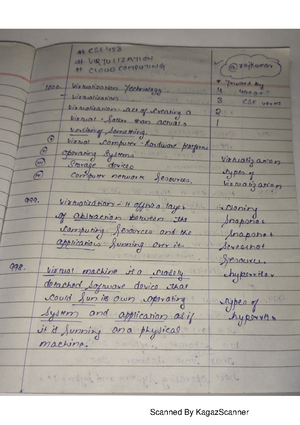 # CSE 423
# VIRTULIZATION
# CLOUD COMPUTING
@rajkumar
1000. Virtualization Technology.
- Virtualization
Virtualization - act of creating a
Virtual. rather than actual
version of something.
Virtual computer hardware platforms
operating systems
storage devices
computer network resources.
4
3 CSE
2
1
Virtualization
types of
Virtualization
999. Virtualization - It offers a layer
of abstraction between the
computing resources and the
application running over it.
cloning
snapshot
snapshot
screenshot
resources
hypervisor
998. Virtual machine is a
detached software device that
could run its own operating
system and application as if
it is running on a physical
machine.
types of
hypervisor
Scanned By KagazScanner